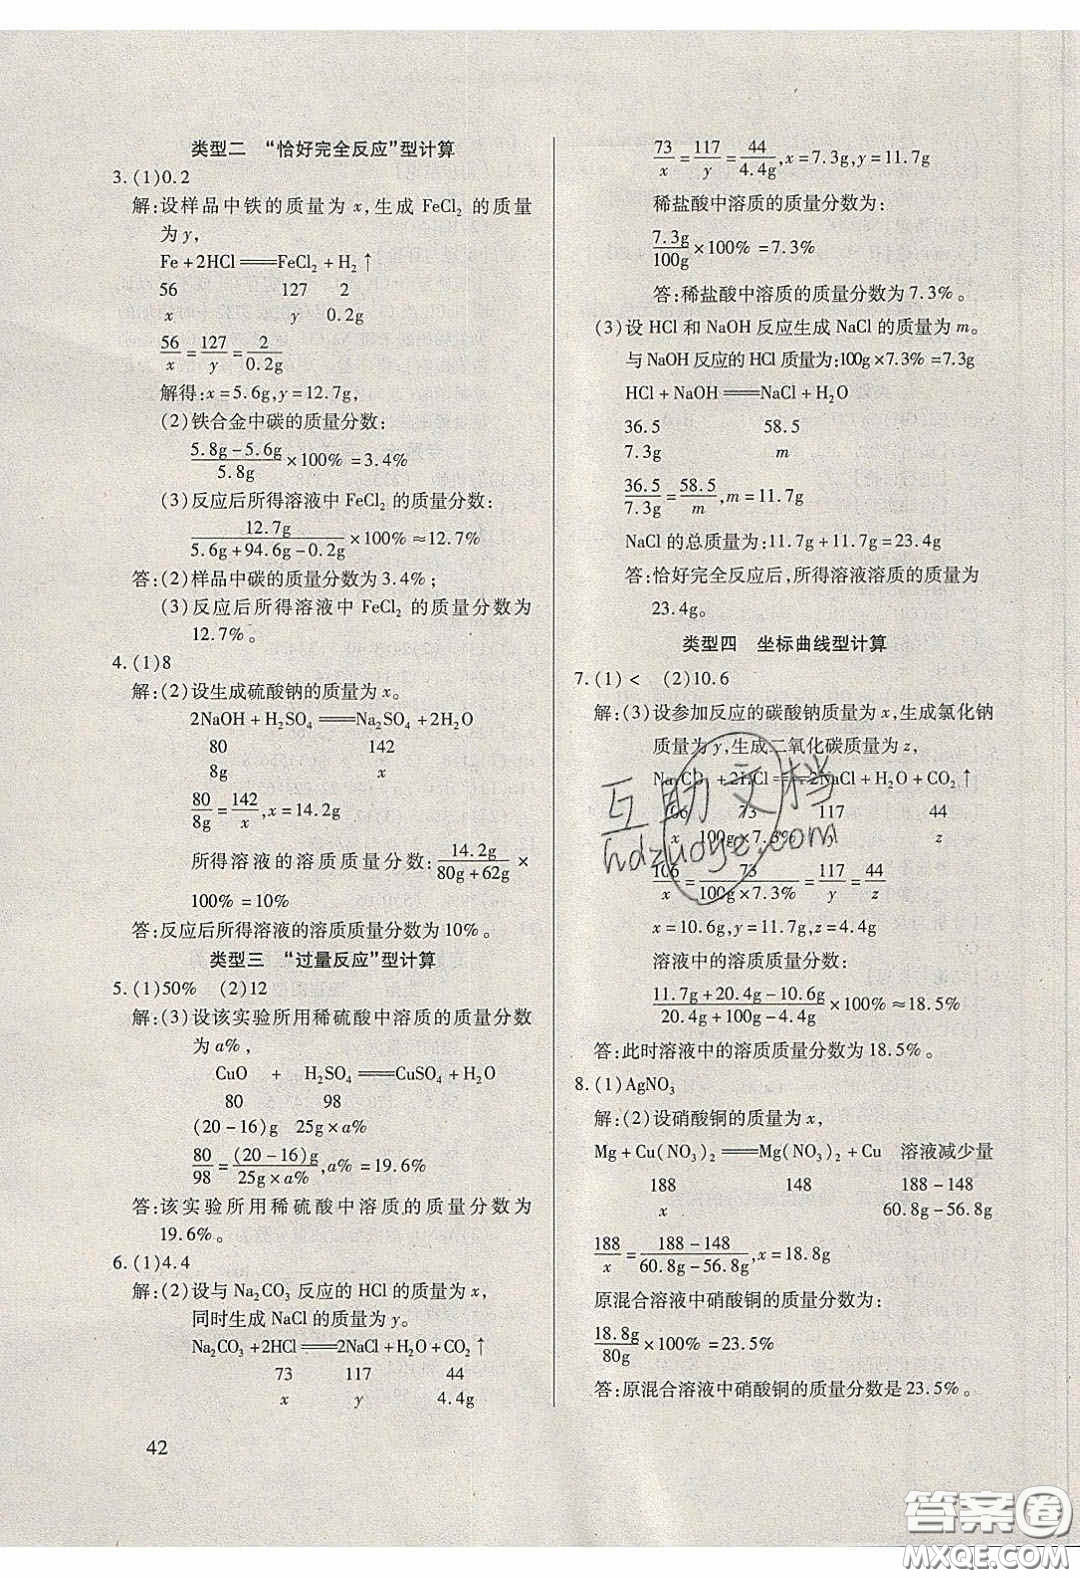 类型二 “恰好完全反应”型计算
3.(1)0.2
解:设样品中铁的质量为 x,生成 FeCl₂ 的质量
为 y,
Fe+2HCl══FeCl₂+H₂↑
56 127 2
x y 0.2g
56/x=127/y=2/0.2g
解得:x=5.6g,y=12.7g,
(2)铁合金中碳的质量分数:
(5.8g-5.6g)/5.8g×100%=3.4%
(3)反应后所得溶液中 FeCl₂ 的质量分数:
12.7g/(5.6g+94.6g-0.2g)×100%≈12.7%
答:(2)样品中碳的质量分数为3.4%;
(3)反应后所得溶液中 FeCl₂ 的质量分数为
12.7%。
4.(1)8
解:(2)设生成硫酸钠的质量为 x。
2NaOH+H₂SO₄══Na₂SO₄+2H₂O
80 142
8g x
80/8g=142/x,x=14.2g
所得溶液的溶质质量分数:14.2g/(80g+62g)×
100%=10%
答:反应后所得溶液的溶质质量分数为10%。
类型三 “过量反应”型计算
5.(1)50% (2)12
解:(3)设该实验所用稀硫酸中溶质的质量分数
为 a%,
CuO + H₂SO₄══CuSO₄+H₂O
80 98
(20-16)g 25g×a%
80/98=(20-16)g/(25g×a%),a%=19.6%
答:该实验所用稀硫酸中溶质的质量分数为
19.6%。
6.(1)4.4
解:(2)设与 Na₂CO₃ 反应的 HCl 的质量为 x,
同时生成 NaCl 的质量为 y。
Na₂CO₃+2HCl══2NaCl+H₂O+CO₂↑
73 117 44
x y 4.4g
42
73/x=117/y=44/4.4g,x=7.3g,y=11.7g
稀盐酸中溶质的质量分数为:
7.3g/100g×100%=7.3%
答:稀盐酸中溶质的质量分数为7.3%。
(3)设 HCl 和 NaOH 反应生成 NaCl 的质量为 m。
与NaOH反应的HCl质量为:100g×7.3%=7.3g
HCl+NaOH══NaCl+H₂O
36.5 58.5
7.3g m
36.5/7.3g=58.5/m,m=11.7g
NaCl的总质量为:11.7g+11.7g=23.4g
答:恰好完全反应后,所得溶液溶质的质量为
23.4g。
类型四 坐标曲线型计算
7.(1)< (2)10.6
解:(3)设参加反应的碳酸钠质量为 x,生成氯化钠
质量为 y,生成二氧化碳质量为 z,
Na₂CO₃+2HCl══2NaCl+H₂O+CO₂↑
106 73 117 44
x 100g×7.3% y z
106/x=73/(100g×7.3%)=117/y=44/z
x=10.6g,y=11.7g,z=4.4g
溶液中的溶质质量分数:
(11.7g+20.4g-10.6g)/(20.4g+100g-4.4g)×100%≈18.5%
答:此时溶液中的溶质质量分数为18.5%。
8.(1)AgNO₃
解:(2)设硝酸铜的质量为 x,
Mg+Cu(NO₃)₂══Mg(NO₃)₂+Cu 溶液减少量
188 148 188-148
x 60.8g-56.8g
188/x=(188-148)/(60.8g-56.8g),x=18.8g
原混合溶液中硝酸铜的质量分数为:
18.8g/80g×100%=23.5%
答:原混合溶液中硝酸铜的质量分数是23.5%。
互助文档
hdzuoye.com
答案圈
MXQE.COM